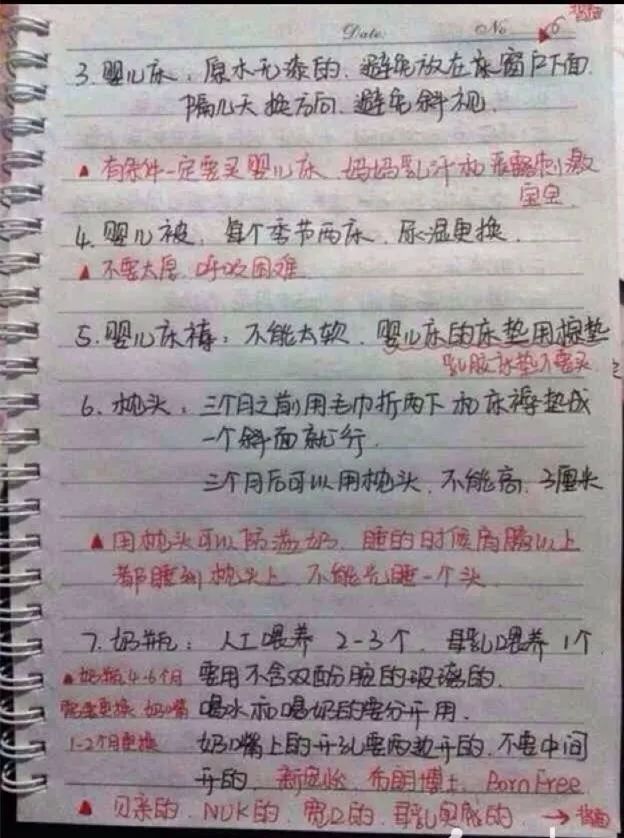 背面
Date. No. 6
3. 婴儿床：原木无漆的．避免放在床窗户下面．
隔几天换方向．避免斜视．
▲ 有条件一定要买婴儿床．妈妈乳汁和 刺激
宝宝．
4. 婴儿被．每个季节两床．尿湿更换．
▲ 不要太厚．呼吸困难
5. 婴儿床褥：不能太软．婴儿床的床垫用棕垫
乳胶床垫不要买
6. 枕头：三个月之前用毛巾折两下和床褥垫成
一个斜面就行．
三个月后可以用枕头．不能高．3厘米
▲ 用枕头可以防溢奶．睡的时候肩膀以上
都睡到枕头上．不能光睡一个头．
7. 奶瓶：人工喂养 2-3个．母乳喂养1个．
▲ 奶瓶4-6个月 要用不含双酚胺的玻璃的．
更换 奶嘴 喝水和喝奶的要分开用．
1-2个月更换 奶嘴上的开孔要两边开的．不要中间
开的．新安怡．布朗博士．Born Free
▲ 贝亲的．NUK的．宽口的．母乳实感的．→背面